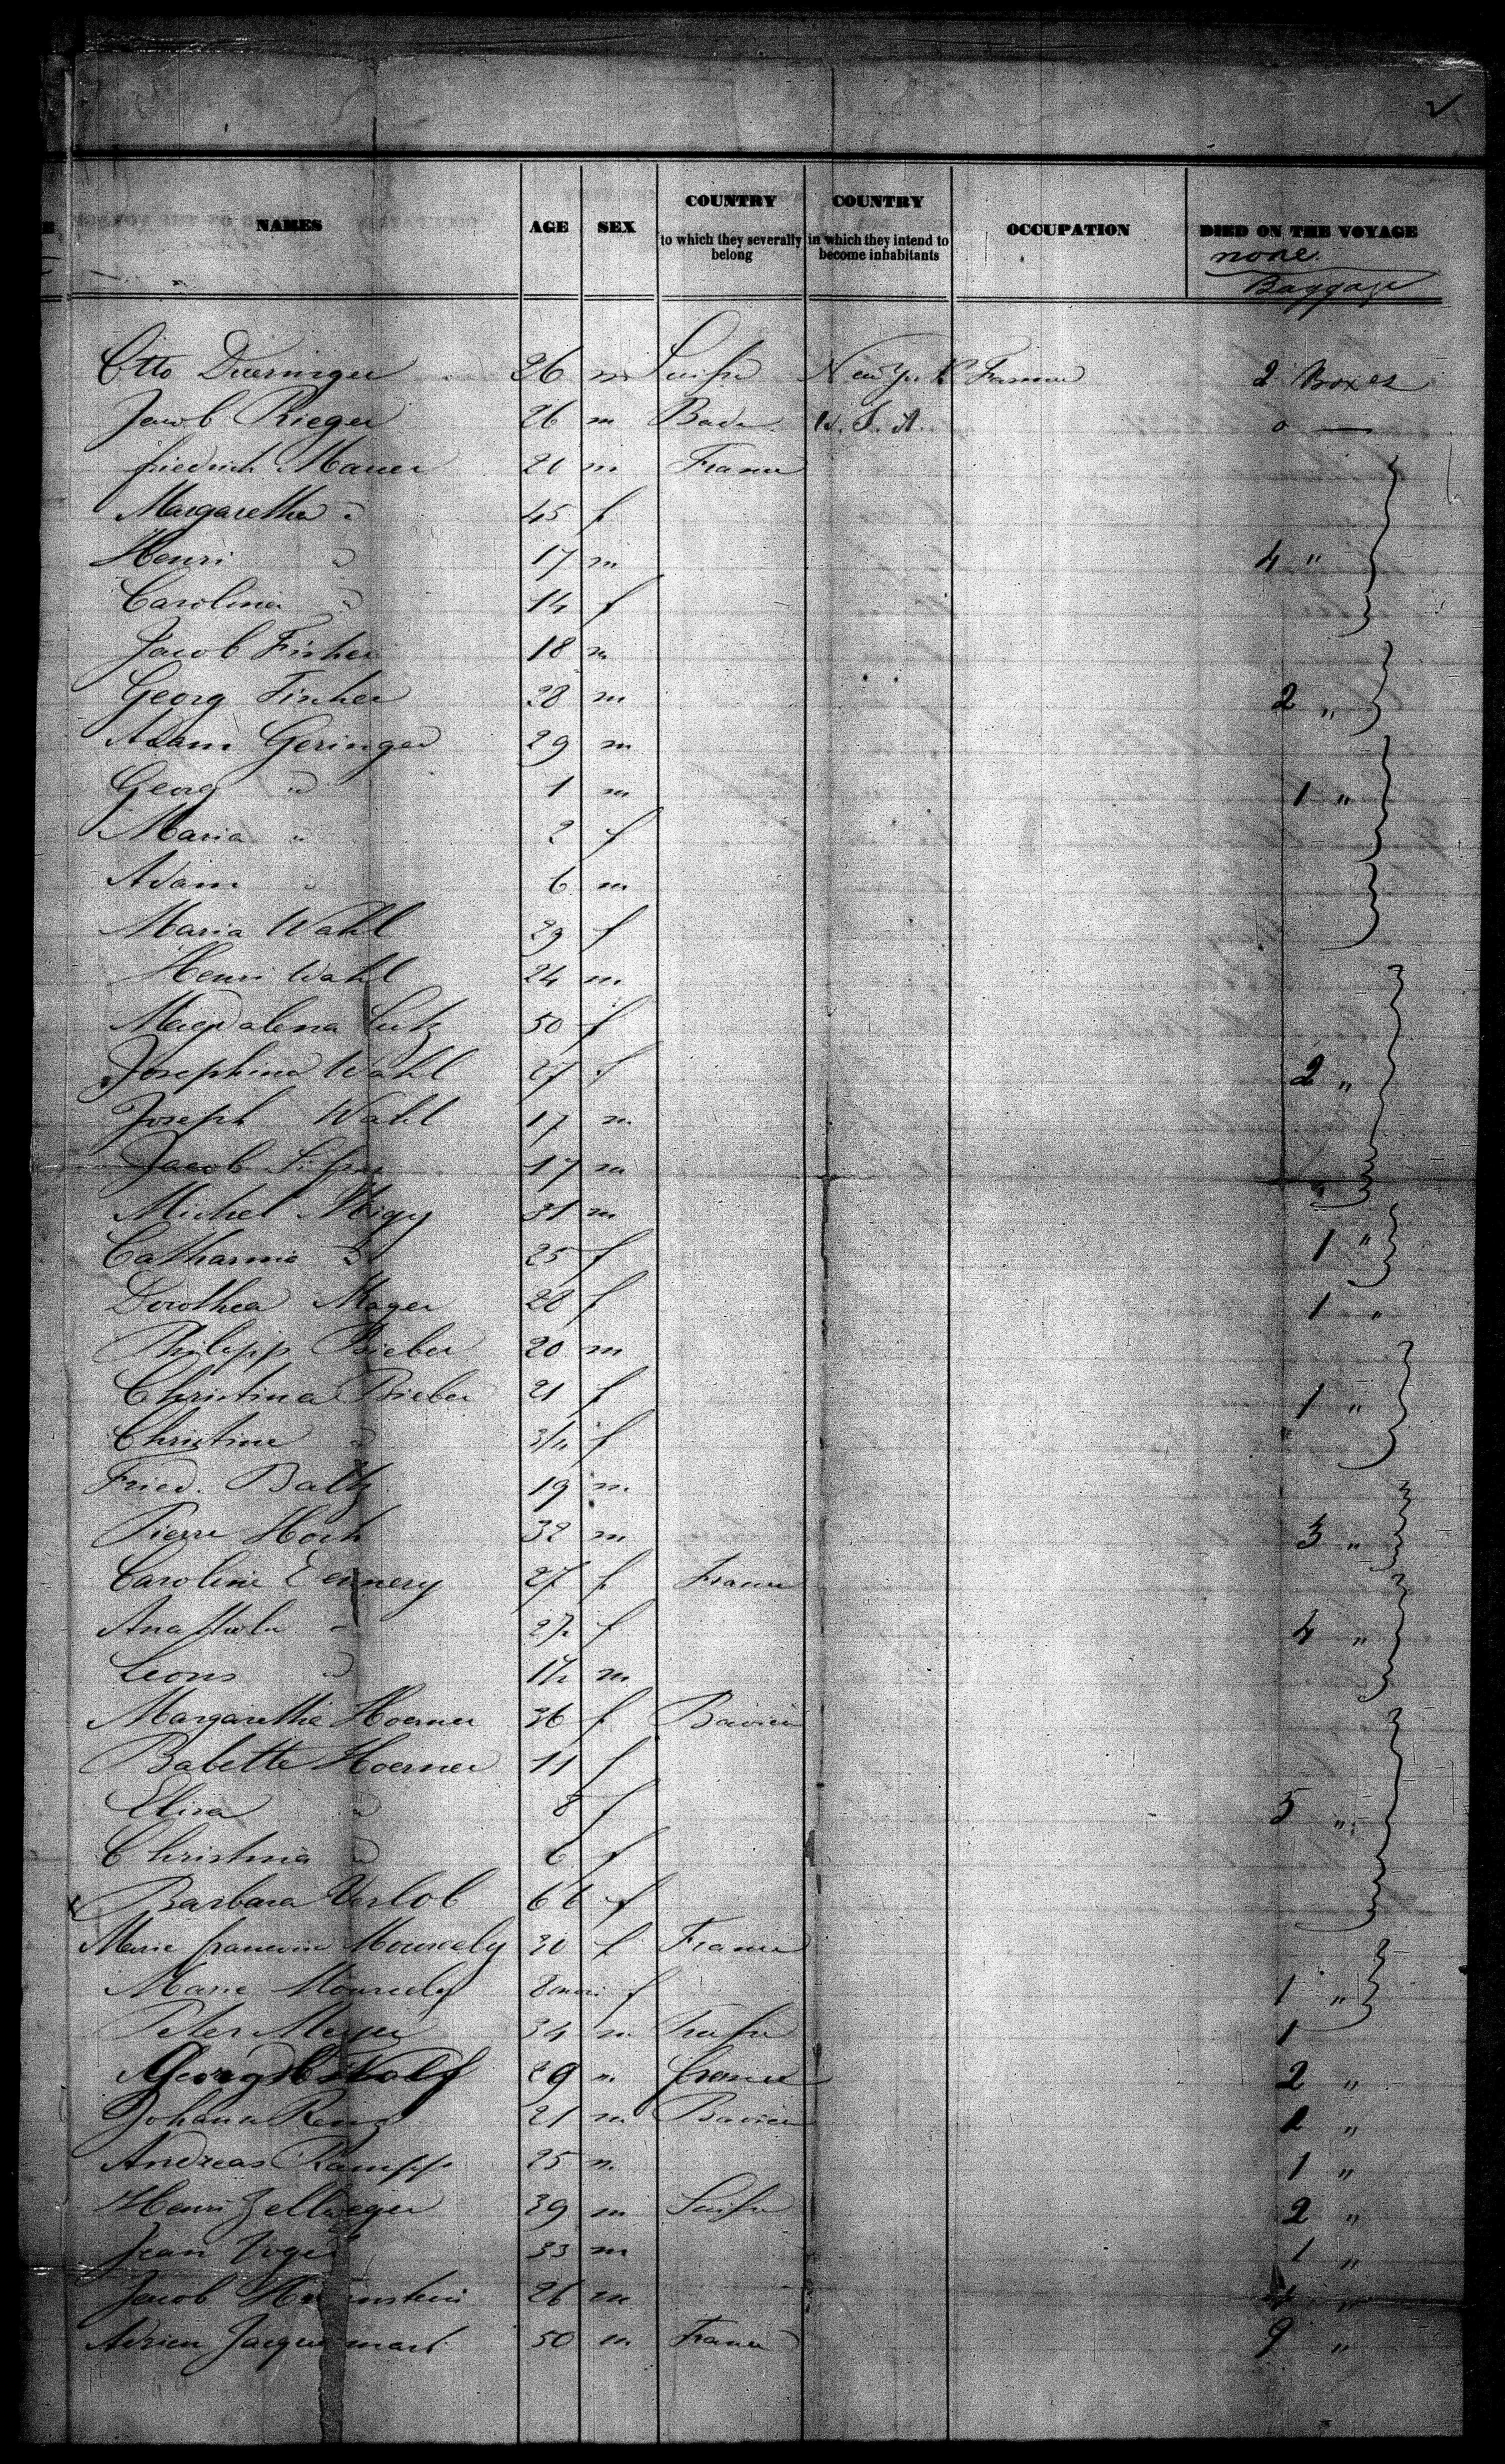 NAMES AGE SEX COUNTRY to which they severally belong COUNTRY in which they intend to become inhabitants OCCUPATION DIED ON THE VOYAGE
none
Baggage
Otto 26 m Suisse New York Farmer 2 Boxes
Jacob Rieger 26 m Bade U.S.A. 0 —
friedrich Mauer 20 m France
Margaretha " 45 f
Henri " 17 m 4 "
Carolina " 14 f
Jacob Fisher 18 m
Georg Fischer 28 m 2 "
Adam Geringer 29 m
Georg " 1 m 1 "
Maria " 2 f
Adam " 6 m
Maria Wahl 29 f
Henri Wahl 24 m
Magdalena Lutz 50 f
Josephine Wahl 27 f 2 "
Joseph Wahl 17 m
Jacob 17 m
Michel 31 m
Catharina " 25 f 1 "
Dorothea Mager 28 f 1 "
Philipp Bieber 20 m
Christina Bieber 21 f 1 "
Christine " 3/4 f
Fried. Baltz 19 m
Pierre Hoch 32 m 3 "
Caroline Dennery 27 f France
" 2½ f 4 "
Leons " 1½ m
Margaretha Hoerner 36 f Baviere
Babette Hoerner 11 f
Elisa " 8 f 5 "
Christina " 6 f
Barbara 66 f
Marie francoise 30 f France
Marie f 1 "
Peter Meyer 34 m 1
Georg Wolf 29 m france 2 "
Johann 21 m Baviere 2 "
Andreas Rampp 25 m 1 "
Henri Zellweger 39 m Suisse 2 "
Jean 33 m 1 "
Jacob 26 m "
Adrien Jacquemart 50 m France 9 "